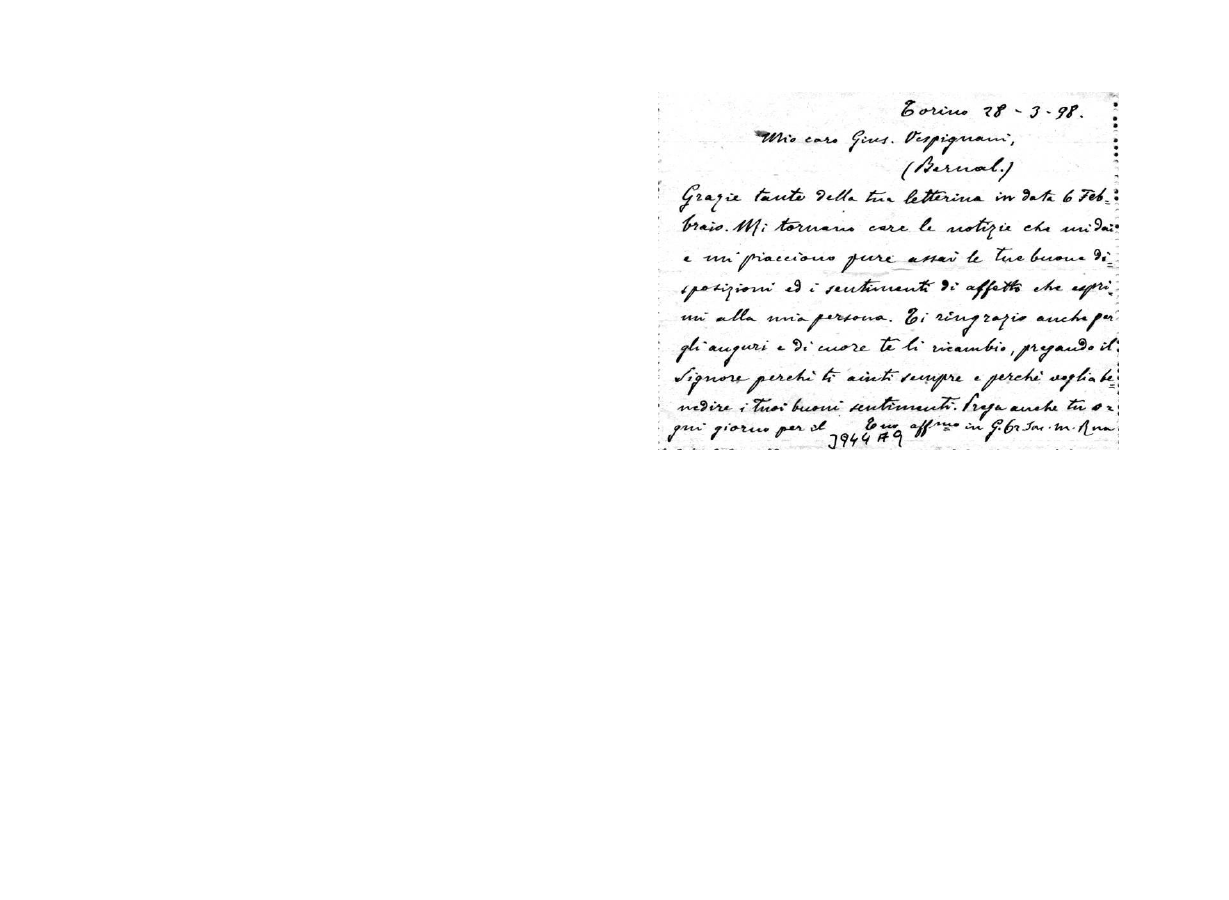 Torino 28 - 3 - 98.
Mio caro Gius. Vespignani,
(Bernal.)
Grazie tante della tua letterina in data 6 Feb-
braio. Mi tornano care le notizie che mi dai
e mi piacciono pure assai le tue buone di=
sposizioni ed i sentimenti di affetto che espri-
mi alla mia persona. Ti ringrazio anche per
gli auguri e di cuore te li ricambio, pregando il
Signore perchè ti aiuti sempre e perchè voglia be=
nedire i tuoi buoni sentimenti. Prega anche tu o=
gni giorno per il Tuo affmo in G. Sac. m. Rua
3944 A 9